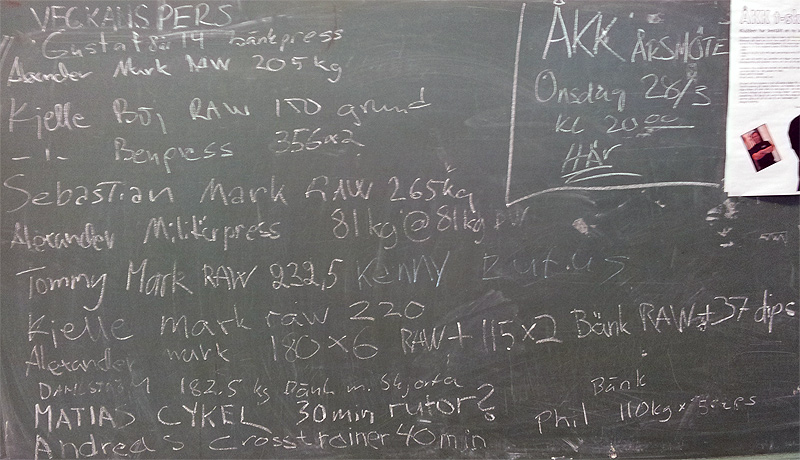 VECKANS PERS
Gustaf 14 bänkpress
Alexander Mark RAW 205 kg
Kjelle Böj RAW 150 grund
– 1 – Benpress 356x2
Sebastian Mark RAW 265kg
Alexander Militärpress 81kg@81kg
Tommy Mark RAW 232,5 Kenny
Kjelle mark raw 220
Alexander mark 180x6 RAW + 115x2 Bänk RAW + 37 dips
DAHLSTRÖM 182.5 kg Bänk m. skjorta
MATIAS CYKEL 30min rutor?
Andreas Crosstrainer 40min
Bänk
Phil 110kg x 5 reps
ÅKK ÅRSMÖTE
Onsdag 28/3
KL 20 00
HÄR